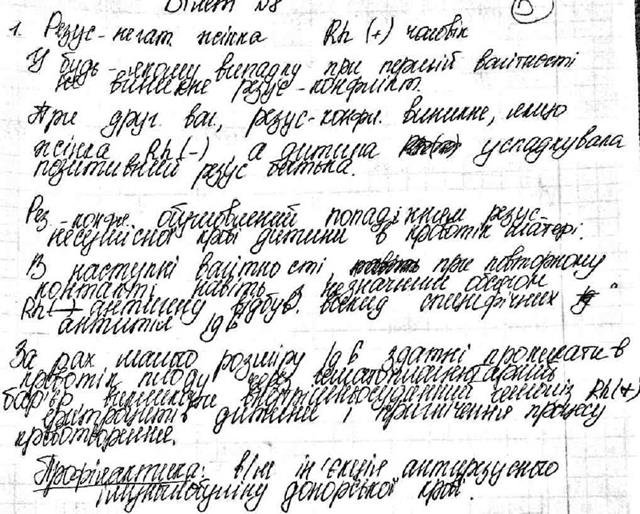 Білет №8
1. Резус-негат. жінка Rh (+) чоловік
У будь-якому випадку при першій вагітності
не виникне резус-конфлікт.
При друг. ваг. резус-конфл. виникне, якщо
жінка Rh(-) а дитина успадкувала
позитивний резус батька.
Рез-конфл. обумовлений попаданням резус-
несумісної крові дитини в кровотік матері.
В наступні вагітності, при повторному
контакті навіть з незначним обсягом
Rh(+) антигену відбув. викид специфічних
антитіл IgG
За рах. малого розміру IgG здатні проникати в
кровотік плоду через гематоплацентарний
бар'єр виникне внутрішньосудинний гемоліз Rh(+)
еритроцитів дитини і пригнічення процесу
кровотворення.
Профілактика: в/м ін'єкція антирезусного
імуноглобуліну донорської крові.